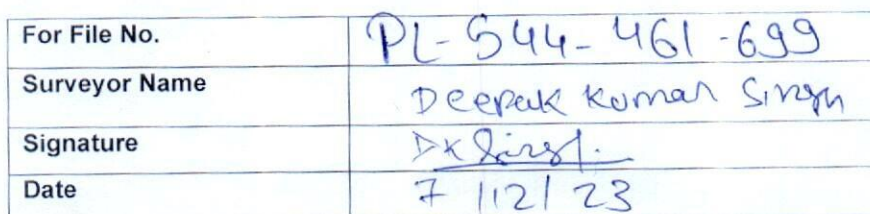 For File No. PL-544-461-699
Surveyor Name Deepak Kumar Singh
Signature DK Singh.
Date 7/12/23